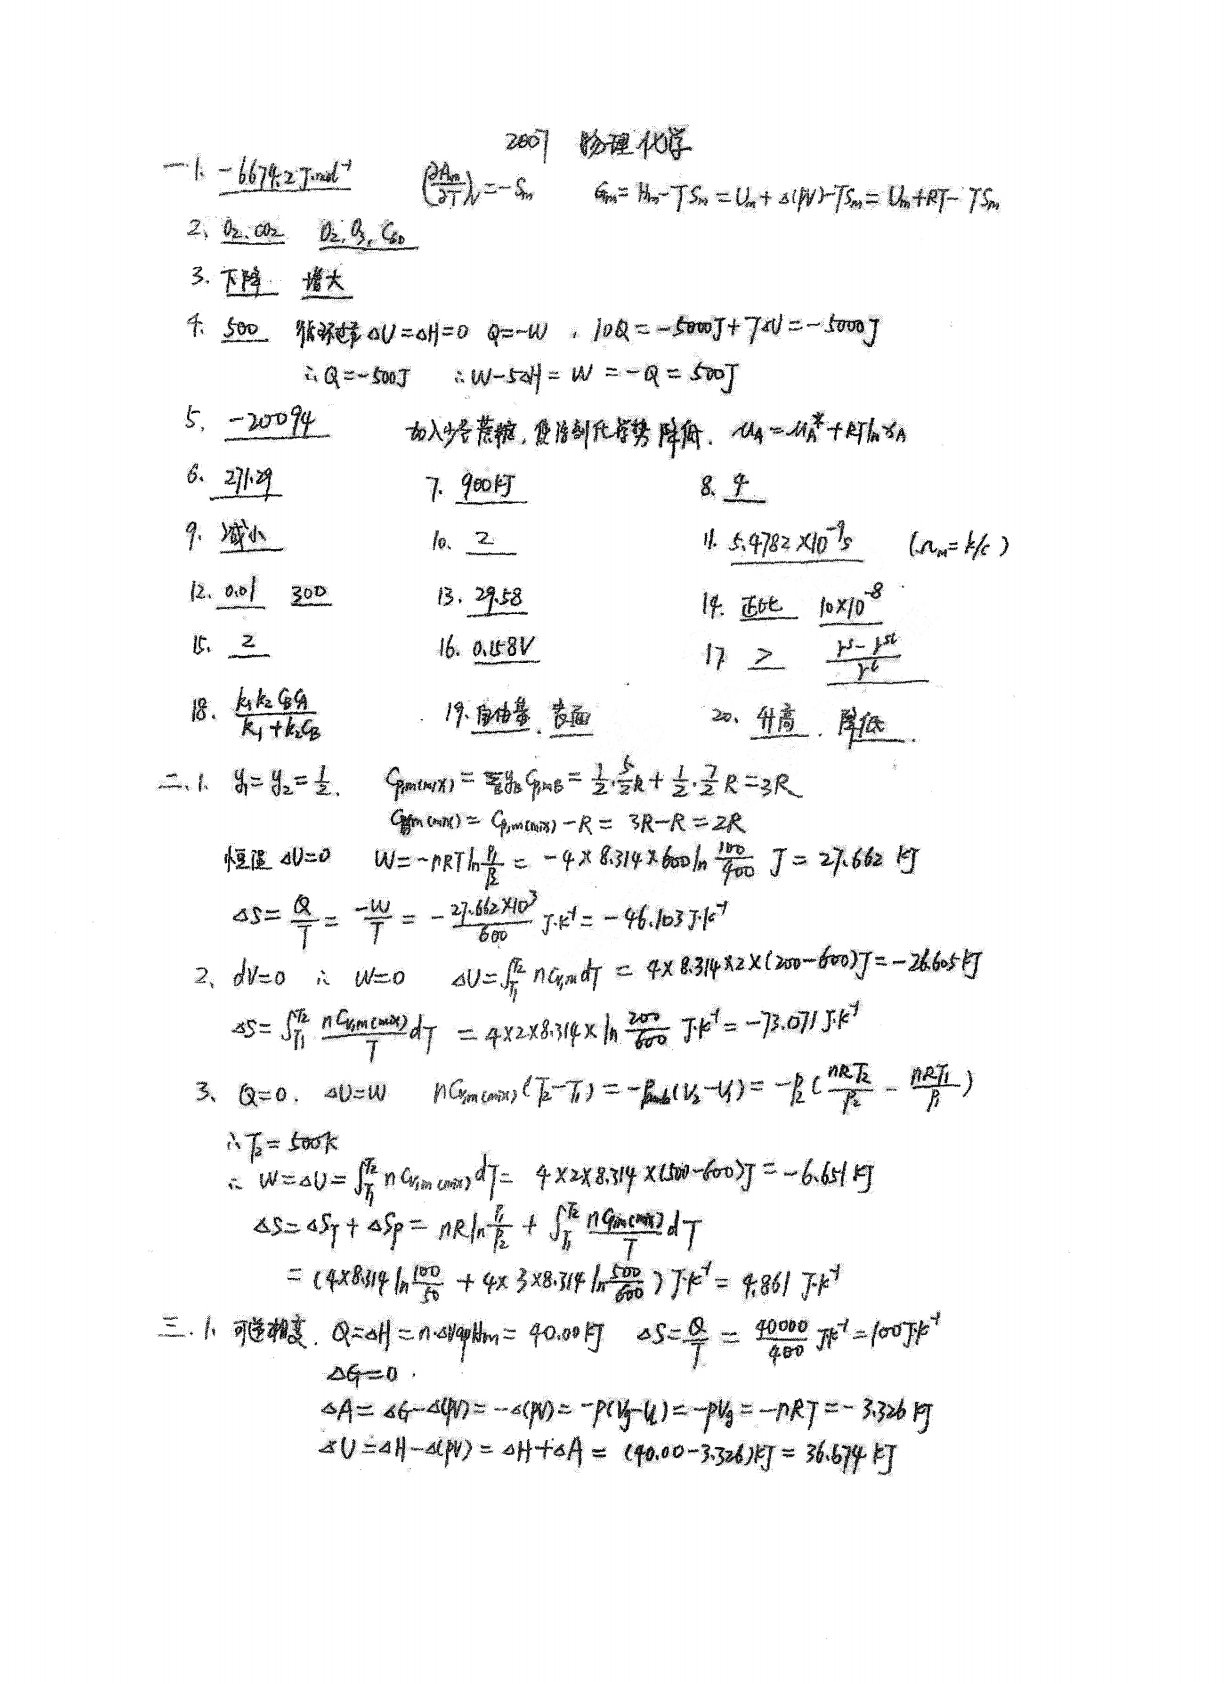 2007 物理化学
一 1. -6674.2 J·mol⁻¹ (∂Aₘ/∂T)ᵥ = -Sₘ Gₘ = Hₘ-TSₘ = Uₘ+Δ(pV)-TSₘ = Uₘ+RT-TSₘ
2、O₂、CO₂ O₂、O₃、C₆₀
3. 下降 增大
4. 500 循环过程 ΔU=ΔH=0 Q=-W , 10Q=-5000J+7ΔU=-5000J
∴Q=-500J ∴W-5ΔH=W=-Q=500J
5. -20094 加入少量蔗糖,使溶剂化学势降低. μA=μA*+RTlnxA
6. 271.29 7. 900kJ 8. 4
9. 减小 10、2 11. 5.4782×10⁻⁹s (Λₘ=k/c)
12. 0.01 300 13. 29.58 14. 正比 10×10⁻⁸
15. 2 16. 0.158V 17 > (γˢ-γˢˡ)/γˡ
18. k₁k₂CBCA/(k₁+k₂CB) 19. 自由基、表面 20、升高、降低.
二、1. y₁=y₂=1/2. Cp,m(mix)=ΣyBCp,m,B=1/2·5/2R+1/2·7/2R=3R
CV,m(mix)=Cp,m(mix)-R=3R-R=2R
恒温 ΔU=0 W=-nRTln p₁/p₂ = -4×8.314×600ln 100/400 J=27.662 kJ
ΔS=Q/T=-W/T=-27.662×10³/600 J·K⁻¹=-46.103J·K⁻¹
2、dV=0 ∴ W=0 ΔU=∫T₁T₂ nCV,mdT = 4×8.314×2×(200-600)J=-26.605kJ
ΔS=∫T₁T₂ nCV,m(mix)/T dT = 4×2×8.314×ln 200/600 J·K⁻¹=-73.071J·K⁻¹
3、Q=0. ΔU=W nCV,m(mix)(T₂-T₁)=-pamb(V₂-V₁)=-p₂(nRT₂/p₂ - nRT₁/p₁)
∴T₂=500K
∴ W=ΔU=∫T₁T₂ nCV,m(mix)dT= 4×2×8.314×(500-600)J=-6.651kJ
ΔS=ΔST+ΔSp=nRln p₁/p₂ + ∫T₁T₂ nCp,m(mix)/T dT
=(4×8.314ln 100/50 + 4×3×8.314ln 500/600)J·K⁻¹=4.861 J·K⁻¹
三.1. 可逆相变. Q=ΔH=n·ΔvapHm=40.00kJ ΔS=Q/T=40000/400 J·K⁻¹=100J·K⁻¹
ΔG=0.
ΔA=ΔG-Δ(pV)=-Δ(pV)=-p(Vg-Vl)=-pVg=-nRT=-3.326kJ
ΔU=ΔH-Δ(pV)=ΔH+ΔA=(40.00-3.326)kJ=36.674kJ